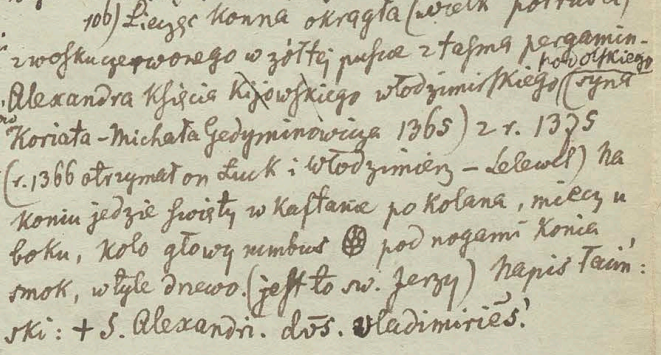 106) Pieczęć konna okrągła (wielk potrójnej
z wosku czerwonego w żółtej puszce z taśmą pergamin-
Alexandra Księcia Kijowskiego włodzimirskiego podolskiego (syna
Koriata-Michała Gedyminowicza 1365) z r. 1375
(r. 1366 otrzymał on Łuck i Włodzimierz – Lelewel) Na
koniu jedzie święty w kaftanie po kolana, miecz u
boku, koło głowy nimbus pod nogami konia
smok, w tyle drzewo. (jest to św. Jerzy) Napis łaciń:
ski: + S. Alexandri. dūs. vladimiriēs.